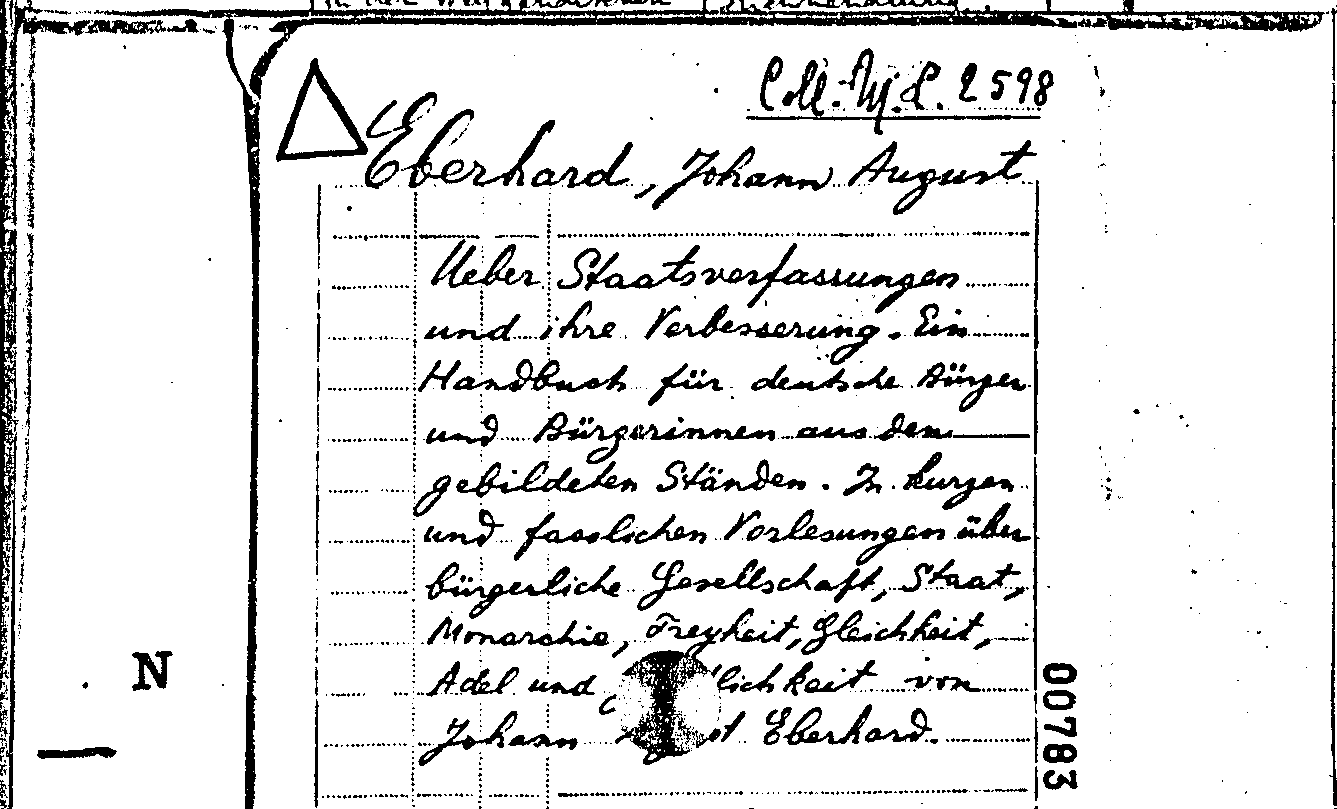 in den
Coll. M.L. 2598
Eberhard, Johann August
Ueber Staatsverfassungen
und ihre Verbesserung. Ein
Handbuch für deutsche Bürger
und Bürgerinnen aus den
gebildeten Ständen. In kurzen
und fasslichen Vorlesungen über
bürgerliche Gesellschaft, Staat,
Monarchie, Freyheit, Gleichheit,
Adel und lichkeit von
Johann Eberhard.
N
00783